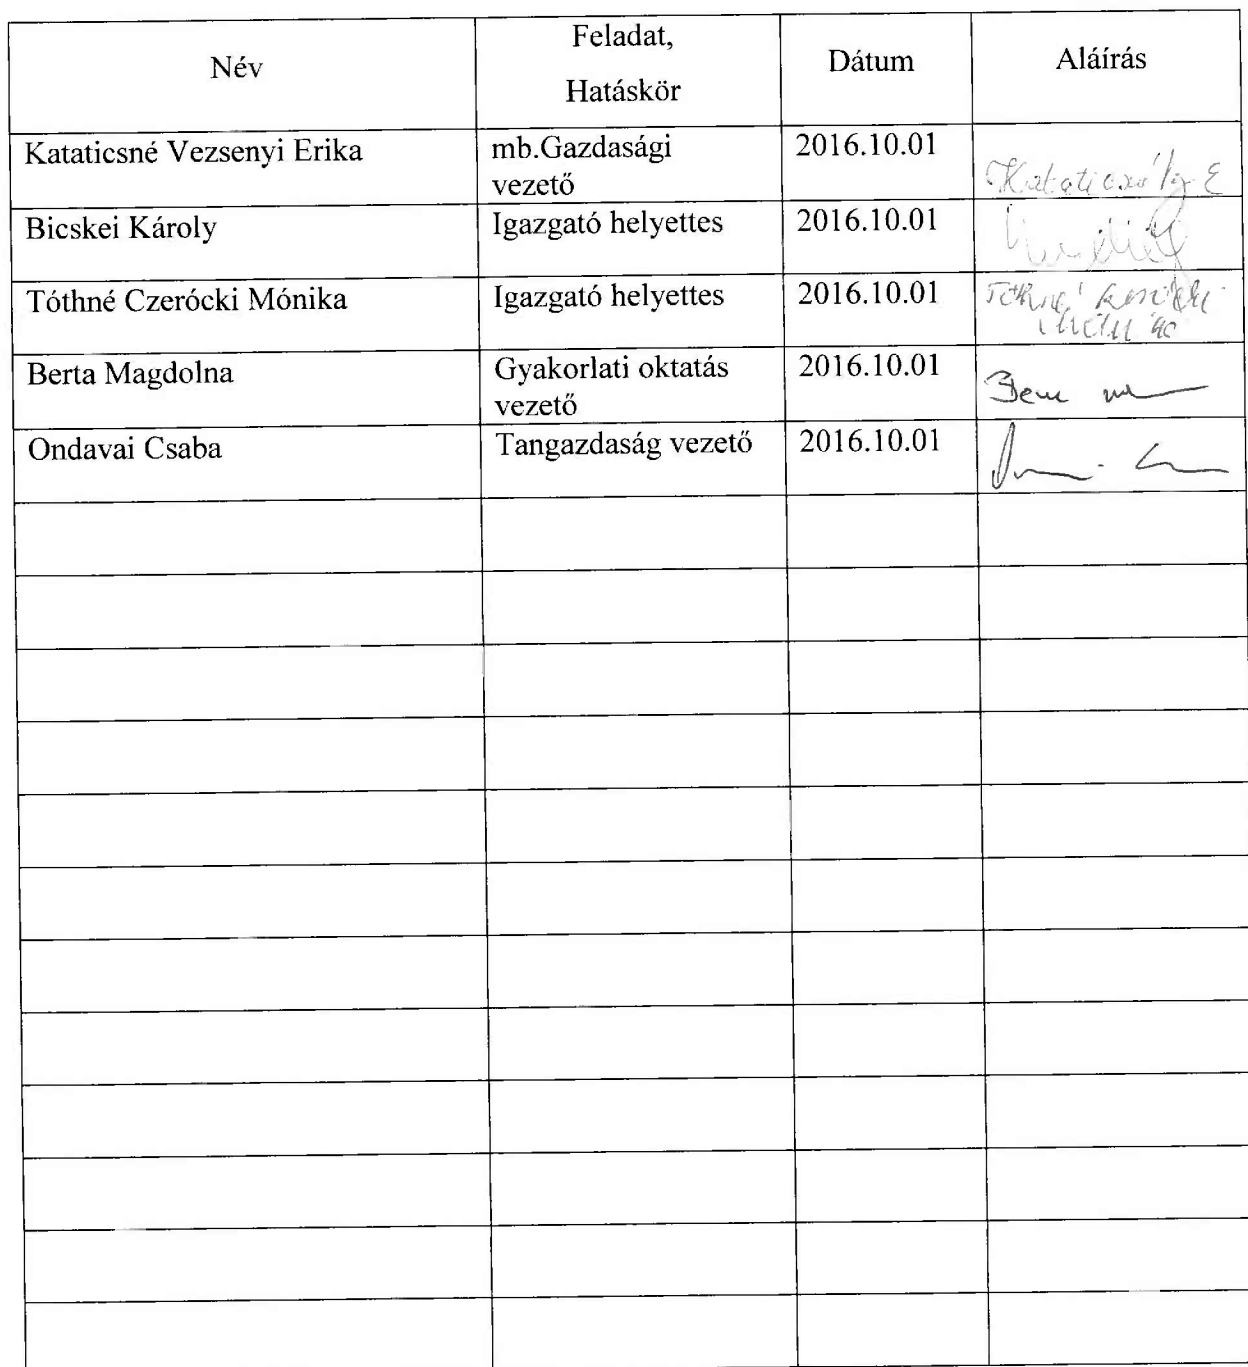 Név
Feladat,
Hatáskör
Dátum
Aláírás
Kataticsné Vezsenyi Erika
mb.Gazdasági
vezető
2016.10.01
Bicskei Károly
Igazgató helyettes
2016.10.01
Tóthné Czerócki Mónika
Igazgató helyettes
2016.10.01
Tóthné
Berta Magdolna
Gyakorlati oktatás
vezető
2016.10.01
Ondavai Csaba
Tangazdaság vezető
2016.10.01